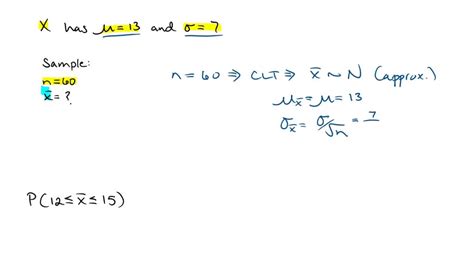 X has μ = 13 and σ = 7
Sample:
n = 60
x̄ = ?
n = 60 ⇒ CLT ⇒ x̄ ~ N (approx.)
μx̄ = μ = 13
σx̄ = σ/√n = 7/
P(12 ≤ x̄ ≤ 15)